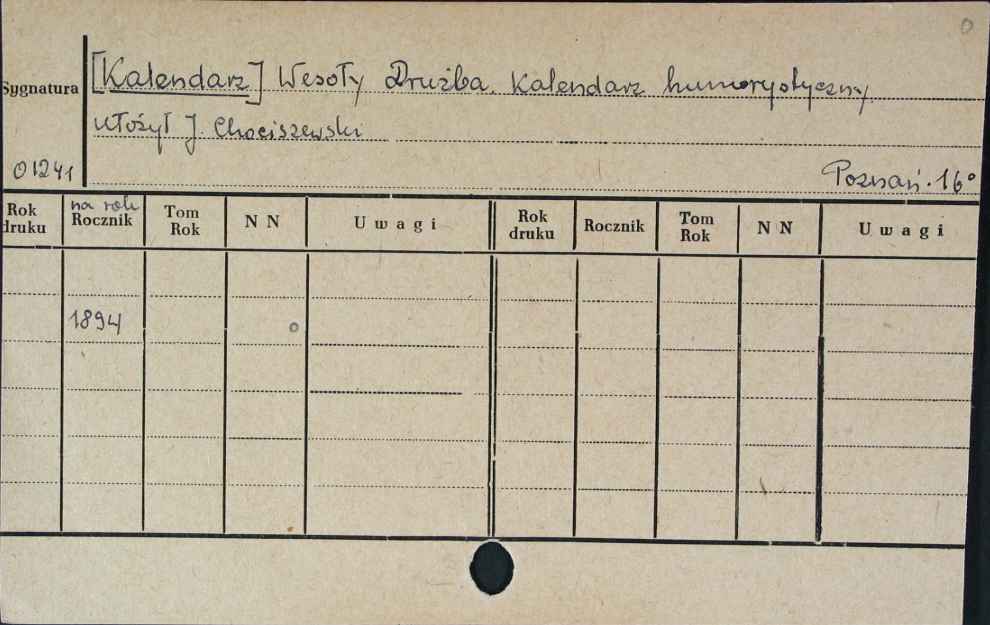 0
Sygnatura [Kalendarz] Wesoły Drużba. Kalendarz humorystyczny
ułożył J. Chociszewski
01241 Poznań. 16°
na rok
Rok druku Rocznik Tom Rok NN Uwagi Rok druku Rocznik Tom Rok NN Uwagi
1894 o